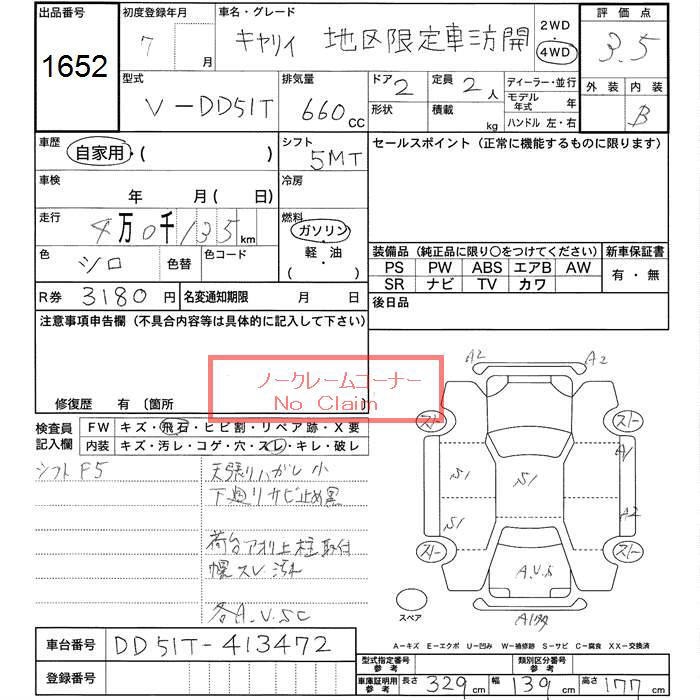 出品番号
1652
初度登録年月
7 月
車名・グレード
キャリイ 地区限定車 3方開
2WD
4WD
評価点
3.5
外装 内装
B
型式
V-DD51T
排気量
660 CC
ドア 2
形状
定員 2 人
積載 kg
ディーラー・並行
モデル年式 年
ハンドル 左・右
車歴
自家用・( )
シフト
5MT
セールスポイント（正常に機能するものに限ります）
車検
年 月（ 日）
冷房
走行
4万0千135 km
燃料
ガソリン・軽油
( )
色
シロ
色替
色コード
装備品（純正品に限り○をつけてください）
PS PW ABS エアB AW
SR ナビ TV カワ
新車保証書
有・無
R券 3180 円
名変通知期限 月 日
後日品
注意事項申告欄（不具合内容等は具体的に記入して下さい）
ノークレームコーナー
No Claim
修復歴 有〔箇所
検査員記入欄
FW キズ・飛石・ヒビ割・リペア跡・X要
内装 キズ・汚レ・コゲ・穴・スレ・キレ・破レ
シフトF5
天張リハガレ小
下廻リサビ止め黒
荷台アオリ上柱取付
幌スレ汚れ
各A.V.SC
A2 A2
スノー スノー
A1
S1 S1
S1 A2
スノー スノー
A.V.S
スペア
A1多
A-キズ E-エクボ U-凹み W-補修跡 S-サビ C-腐食 XX-交換済
車台番号 DD51T-413472
登録番号
型式指定番号 参考
類別区分番号 参考
車庫証明用 参考
長さ 329 cm 幅 139 cm 高さ 177 cm